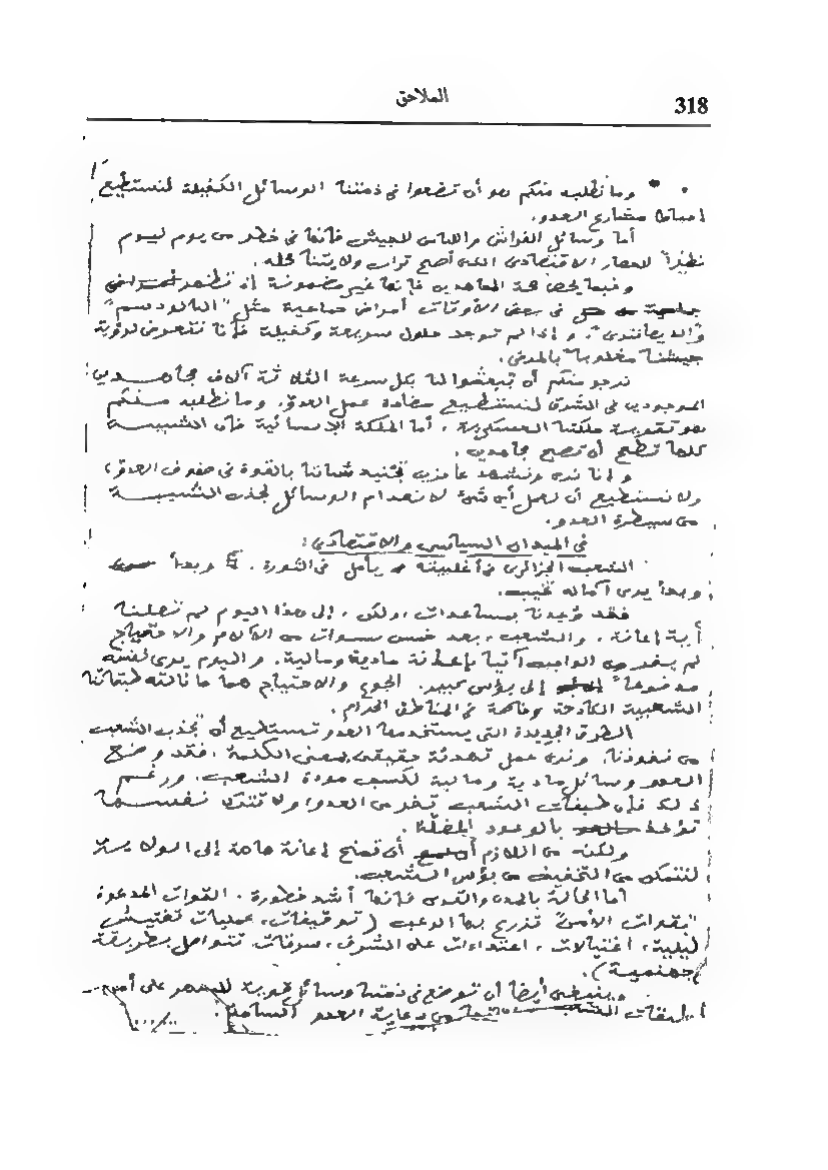 318
الملاحق
وما نطلبه منكم هو أن تضعوا في ذمتنا الوسائل الكفيلة لنستطيع
احباط مشاريع العدو.
أما وسائل الفراش واللباس للجيش فانها في خطر من يوم ليوم
نظراً للحصار الاقتصادي الذي أصبح
وفيما يخص صحة المجاهدين فانها غير مضمونة إذ تظهر
في بعض الأوقات أمراض جماعية مثل "البالوديسم"
و إذا لم توجد حلول سريعة وكفيلة فإننا نتعرض لرؤية
جيشنا مغلوباً بالمرض.
نرجو منكم أن تبعثوا لنا بكل سرعة الثلاثة آلاف مجاهدين
الموجودين في الشرق لنستطيع مضادة عمل العدو. وما نطلبه منكم
هو تقوية ملكتنا العسكرية. أما الملكة الإنسانية فإن الشبيبة
كلها تطمح أن تصبح مجاهدين.
و إننا نرى ونشهد عاجزين تجنيد شباننا بالقوة في صفوف العدو،
ولا نستطيع أن نعمل أي شيء لانعدام الوسائل لجذب الشبيبة
من سيطرة العدو.
في الميدان السياسي والاقتصادي:
الشعب الجزائري في أغلبيته يأمل في الثورة. وبدأ
وبدأ يرى آماله تخيب.
فقد وعدنا بمساعدات، ولكن، إلى هذا اليوم لم تصلنا
أية إعانة. والشعب، بعد خمس سنوات من الآلام والاحتياج
لم ير من الواجب آتيا بإعانة مادية ومالية. واليوم يرى نفسه
موضوعاً إلى بؤس كبير. الجوع والاحتياج هما ما نالته طبقاتنا
الشعبية الكادحة وخاصة في المناطق الحرام.
الطرق الجديدة التي يستخدمها العدو تستطيع أن تجذب الشعب
من نفوذنا. ونرى عمل تهدئة حقيقي بمعنى الكلمة، فقد وضع
العدو وسائل مادية ومالية لكسب مودة الشعب. ورغم
ذلك فإن طبقات الشعب تنفر من العدو ولا تترك نفسها
تؤخذ بالوعود المضللة.
ولكنه من اللازم أن تمنح إعانة هامة إلى الولاية
لنتمكن من التخفيف من بؤس الشعب.
أما الحالة بالمدن والقرى فانها أشد خطورة. القوات المدعوة
"بقوات الأمن" تزرع بها الرعب (توقيفات، عمليات تفتيش
ليلية، اغتيالات، اعتداءات على الشرف، سرقات تتواصل بطريقة
جهنمية).
وينبغي أيضا أن توضع في ذمتنا وسائل قوية للسهر على
طبقات الشعب من دعاية العدو السامة.